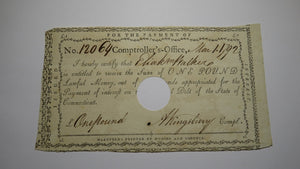 FOR THE PAYMENT OF
No. 12064 Comptroller's-Office, 1792
I hereby certify that Walker
is entitled to receive the Sum of ONE POUND
Lawful Money, out of appropriated for the
Payment of interest on Debt of the State of
Connecticut.
£ One pound Kingsbury Compt.
HARTFORD: PRINTED BY HUDSON AND GOODWIN.